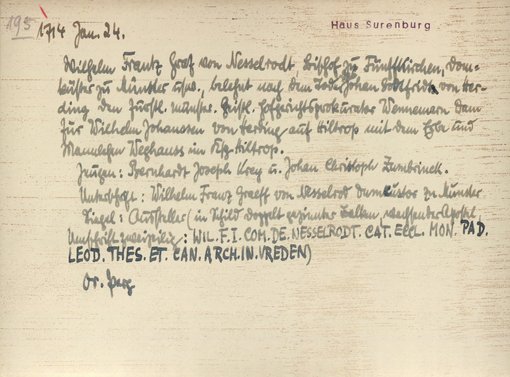 195
1714 Jan. 24.
Haus Surenburg
Wilhelm Frantz Graf von Nesselrodt, Bischof zu Fünffkirchen, Dom-
küster zu Münster usw., belehnt nach dem Tode Johan Godtfridts von Her-
ding den fürstl. münster. Geistl. Hofgerichtsprokurator Wennemern Dam
für Wilhelm Johanssen von Herding auf Hiltrop mit dem Erbe und
Mannlehen Weghauss im Ksp. Hiltrop.
Zeugen: Bernhardt Joseph Krey u. Johan Christoph Zumbrinck.
Unterschr.: Wilhelm Franz Graeff von Nesselrod Dumcustor zu Münster
Siegel: Aussteller (im Schild doppelt gezinnter Balken,
Umschrift zweizeilig: WIL. F. I. COM. DE. NESSELRODT. CAT. ECCL. MON. PAD.
LEOD. THES. ET. CAN. ARCH. IN. VREDEN)
Or. Perg